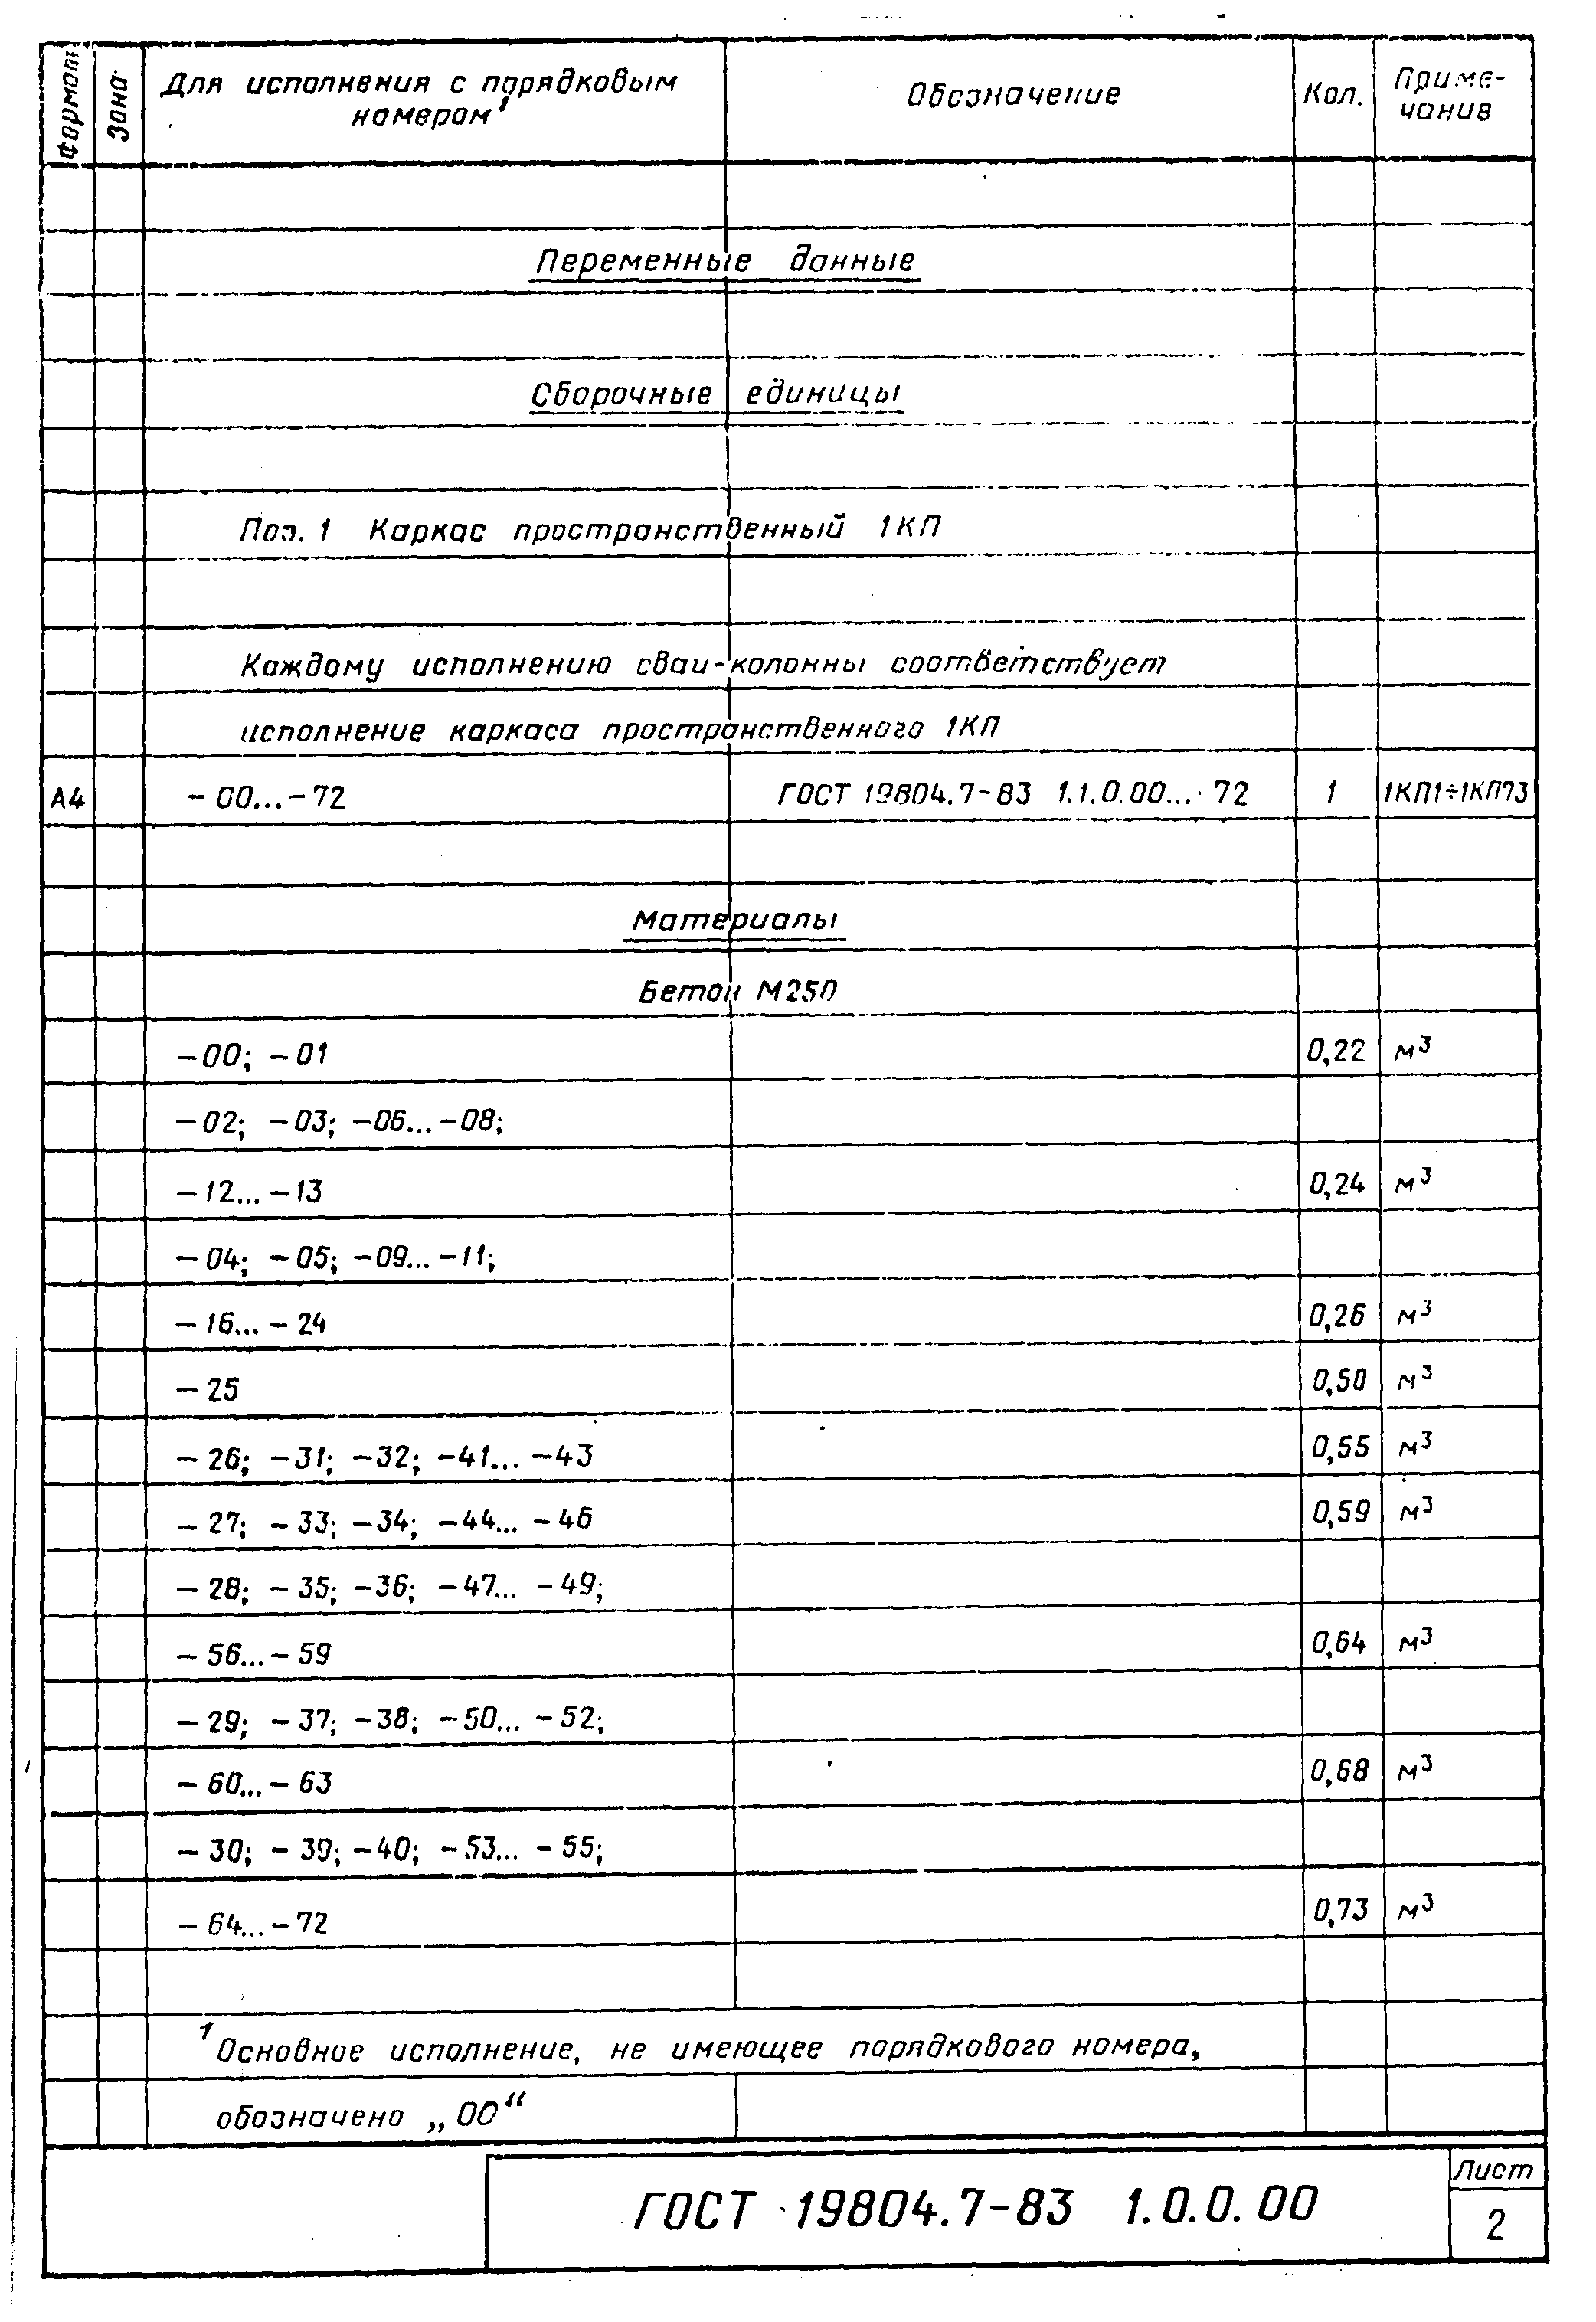 Формат
Зона
Для исполнения с порядковым
номером¹
Обозначение
Кол.
Приме-
чание
Переменные данные
Сборочные единицы
Поз. 1 Каркас пространственный 1КП
Каждому исполнению сваи-колонны соответствует
исполнение каркаса пространственного 1КП
А4 -00...-72 ГОСТ 19804.7-83 1.1.0.00... 72 1 1КП1÷1КП73
Материалы
Бетон М250
-00; -01 0,22 м³
-02; -03; -06...-08;
-12...-13 0,24 м³
-04; -05; -09...-11;
-16...-24 0,26 м³
-25 0,50 м³
-26; -31; -32; -41...-43 0,55 м³
-27; -33; -34; -44...-46 0,59 м³
-28; -35; -36; -47...-49;
-56...-59 0,64 м³
-29; -37; -38; -50...-52;
-60...-63 0,68 м³
-30; -39; -40; -53...-55;
-64...-72 0,73 м³
¹ Основное исполнение, не имеющее порядкового номера,
обозначено „00“
ГОСТ 19804.7-83 1.0.0.00
Лист
2